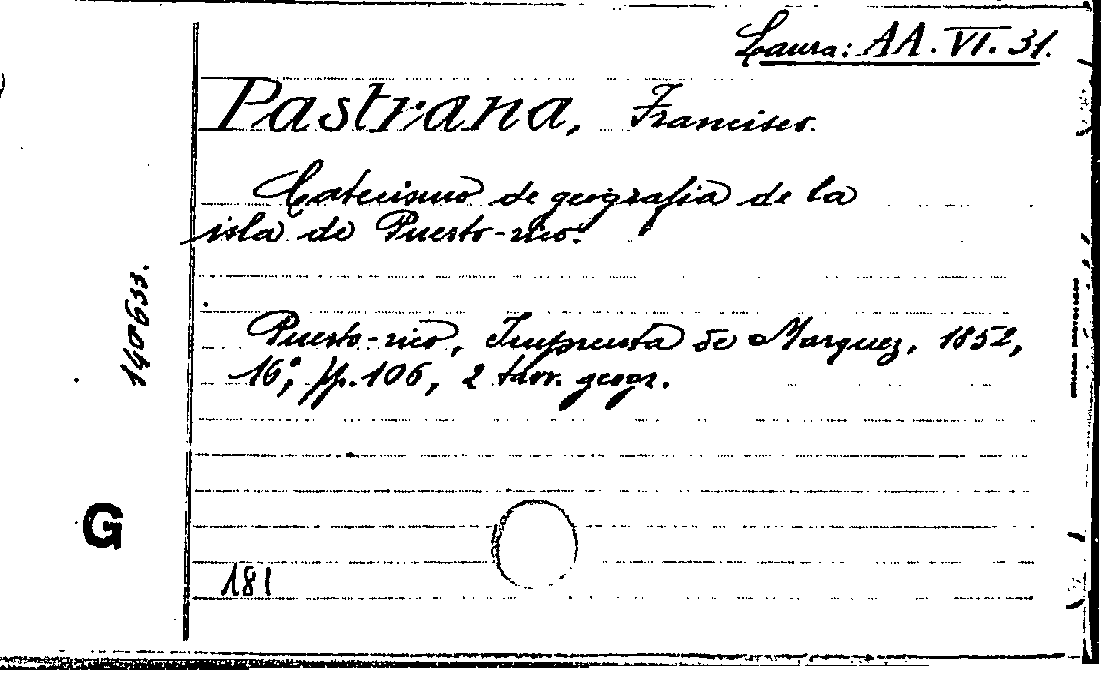 Laura: AA. VI. 31.
Pastrana, Francisco.
Catecismo de geografia de la
isla de Puerto-rico.
Puerto-rico, Imprenta de Marquez, 1852,
16°, pp. 106, 2 tav. geogr.
140633.
G
181